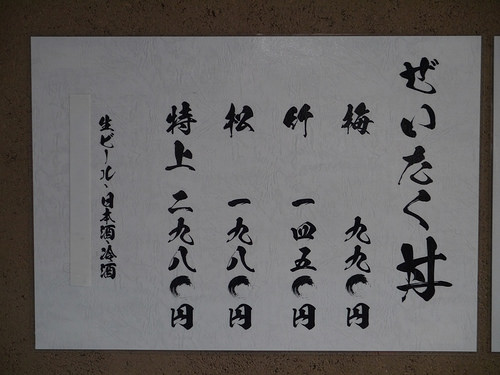 ぜいたく丼
梅 九九〇円
竹 一四五〇円
松 一九八〇円
特上 二九八〇円
生ビール、日本酒、冷酒